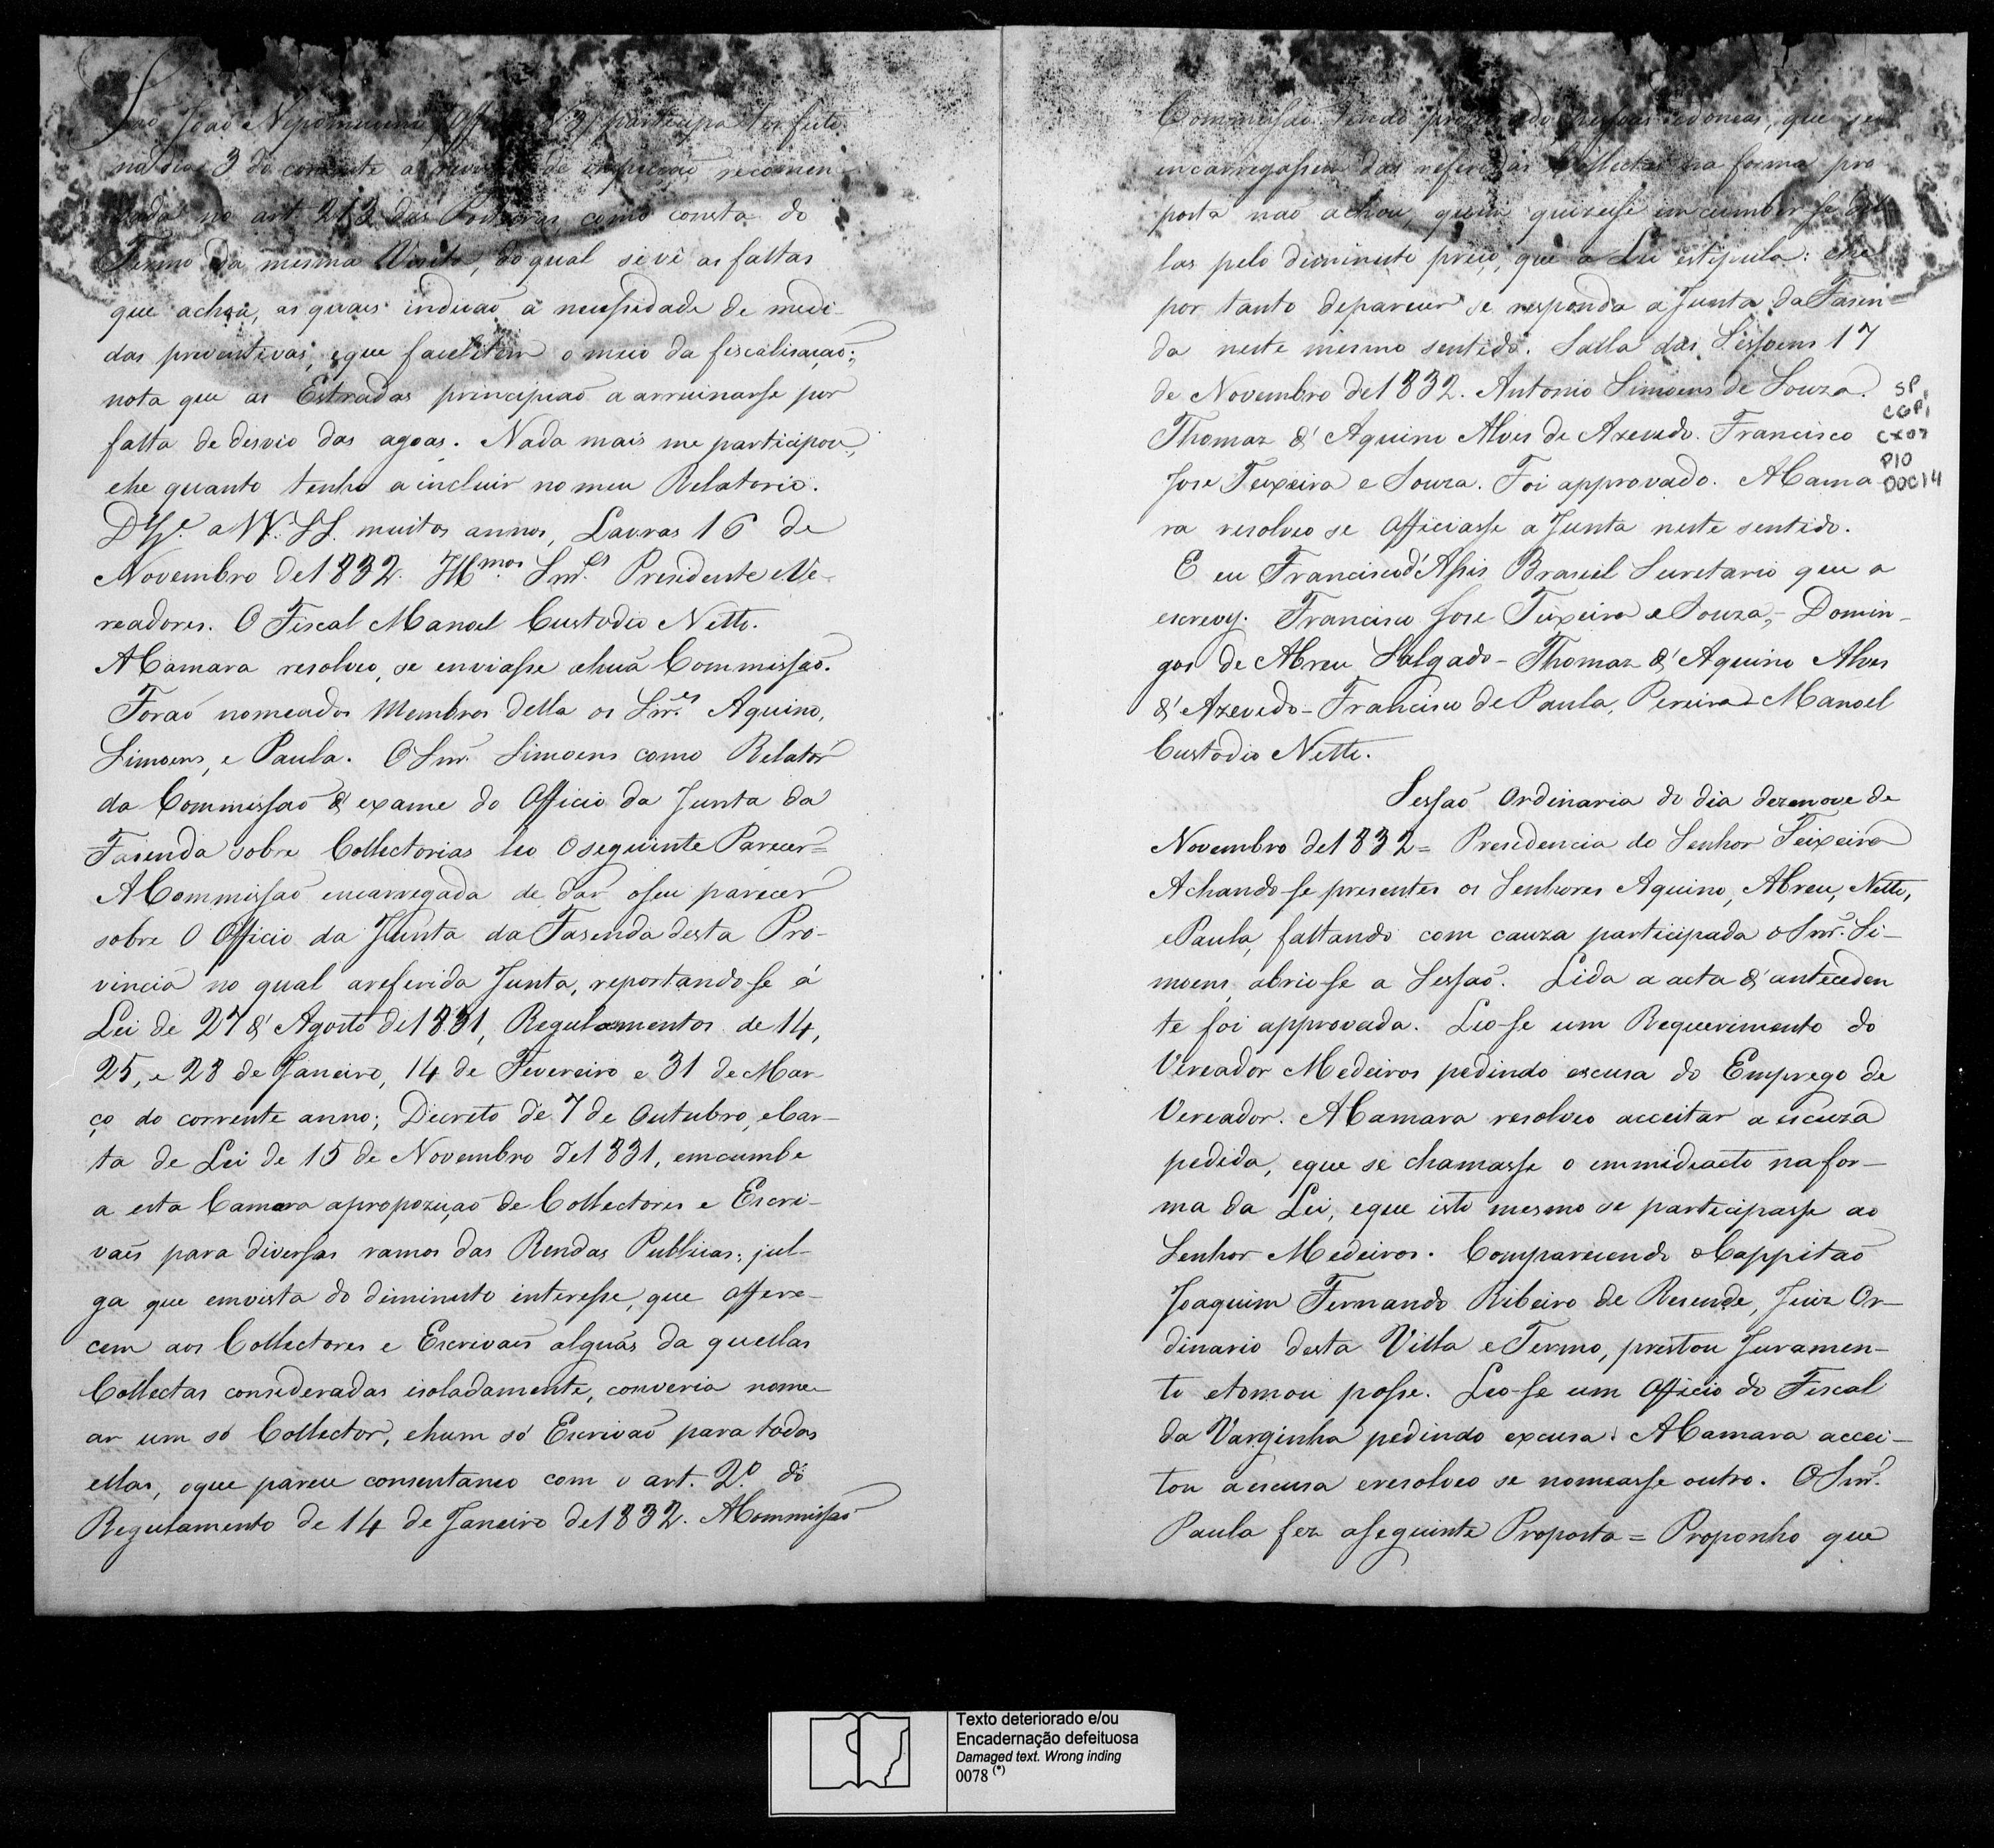 São João Nepomuceno participa ter feito
no dia 3 do corrente a de inspecção recomen-
dada no art. 213 das Posturas como consta do
Termo da mesma Visita, do qual se vê as faltas
que achou, as quais indicaõ a necessidade de medi-
das preventivas, e que facilitem o meio da fiscalisaçaõ;
nota que as Estradas principiaõ a arruinarse por
falta de desvio das agoas. Nada mais me participou,
ehe quanto tenho a incluir no meu Relatorio.
D.s G.e a VV. SS. muitos annos, Lavras 16 de
Novembro de 1832. Ill.mos Snr.es Presidente e Ve-
readores. O Fiscal Manoel Custodio Netto.
A Camara resolveo, se enviasse ahuã Commissaõ.
Foraõ nomeados Membros della os Snr.es Aquino,
Simoens, e Paula. O Snr. Simoens como Relator
da Commissaõ d'exame do Officio da Junta da
Fazenda sobre Collectorias leo o seguinte Parecer=
A Commissaõ encarregada de dar o seu parecer
sobre o Officio da Junta da Fasenda desta Pro-
vincia no qual a referida Junta, reportando-se á
Lei de 27 d'Agosto de 1831, Regulamentos de 14,
25, e 28 de Janeiro, 14 de Fevereiro e 31 de Mar-
ço do corrente anno; Decreto de 7 de Outubro, e Car-
ta de Lei de 15 de Novembro de 1831, emcumbe
a esta Camara apropoziçaõ de Collectores e Escri-
vaẽs para diversas ramos das Rendas Publicas; jul-
ga que emvista do diminuto interesse, que offere-
cem aos Collectores e Escrivaẽs alguãs da quellas
Collectas consideradas isoladamente, converia nome-
ar um só Collector, ehum só Escrivaõ para todas
ellas, oque parece consentaneo com o art. 2º do
Regulamento de 14 de Janeiro de 1832. A Commissaõ
Commissaõ tendo procurado pessoas idoneas, que se
encarregassem das referidas Collectas na forma pro
posta naõ achou, quem quizesse emcumbir-se del
las pelo diminuto preço, que a Lei estipula: ehe
por tanto deparecer se responda a Junta da Fasen-
da neste mesmo sentido. Salla das Sessoens 17
de Novembro de 1832. Antonio Simoens de Souza.
Thomaz d'Aquino Alves de Azevedo. Francisco
Jose Teixeira e Souza. Foi approvado. A Cama-
ra resolveo se Officiasse a Junta neste sentido.
E eu Francisco d'Assis Brasiel Secretario que a
escrevy. Francisco Jose Teixeira e Souza,- Domin-
gos de Abreu Salgado- Thomaz d'Aquino Alves
d'Azevedo- Francisco de Paula, Pereira- Manoel
Custodio Netto.
SP,
CGP,
CX07
P10
DOC14
Sessaõ Ordinaria do dia dezenove de
Novembro de 1832= Presidencia do Senhor Teixeira
Achando-se presentes os Senhores Aquino, Abreu, Netto,
e Paula, faltando com cauza participada o Snr. Si-
moens, abrio-se a Sessaõ. Lida a acta d'anteceden
te foi approvada. Leo-se um Requerimento do
Vereador Medeiros pedindo escusa do Emprego de
Vereador. A Camara resolveo acceitar a escuza
pedida, eque se chamasse o immidiacto na for-
ma da Lei, eque isto mesmo se participasse ao
Senhor Medeiros. Comparecendo o Cappitaõ
Joaquim Fernando Ribeiro de Resende, Juiz Or-
dinario desta Villa e Termo, prestou Juramen-
to etomou posse. Leo-se um Officio do Fiscal
da Varginha pedindo excusa. A Camara accei-
tou a escusa eresolveo se nomeasse outro. O Snr.
Paula fez a seguinte Proposta = Proponho que
Texto deteriorado e/ou
Encadernação defeituosa
Damaged text. Wrong inding
0078 (*)